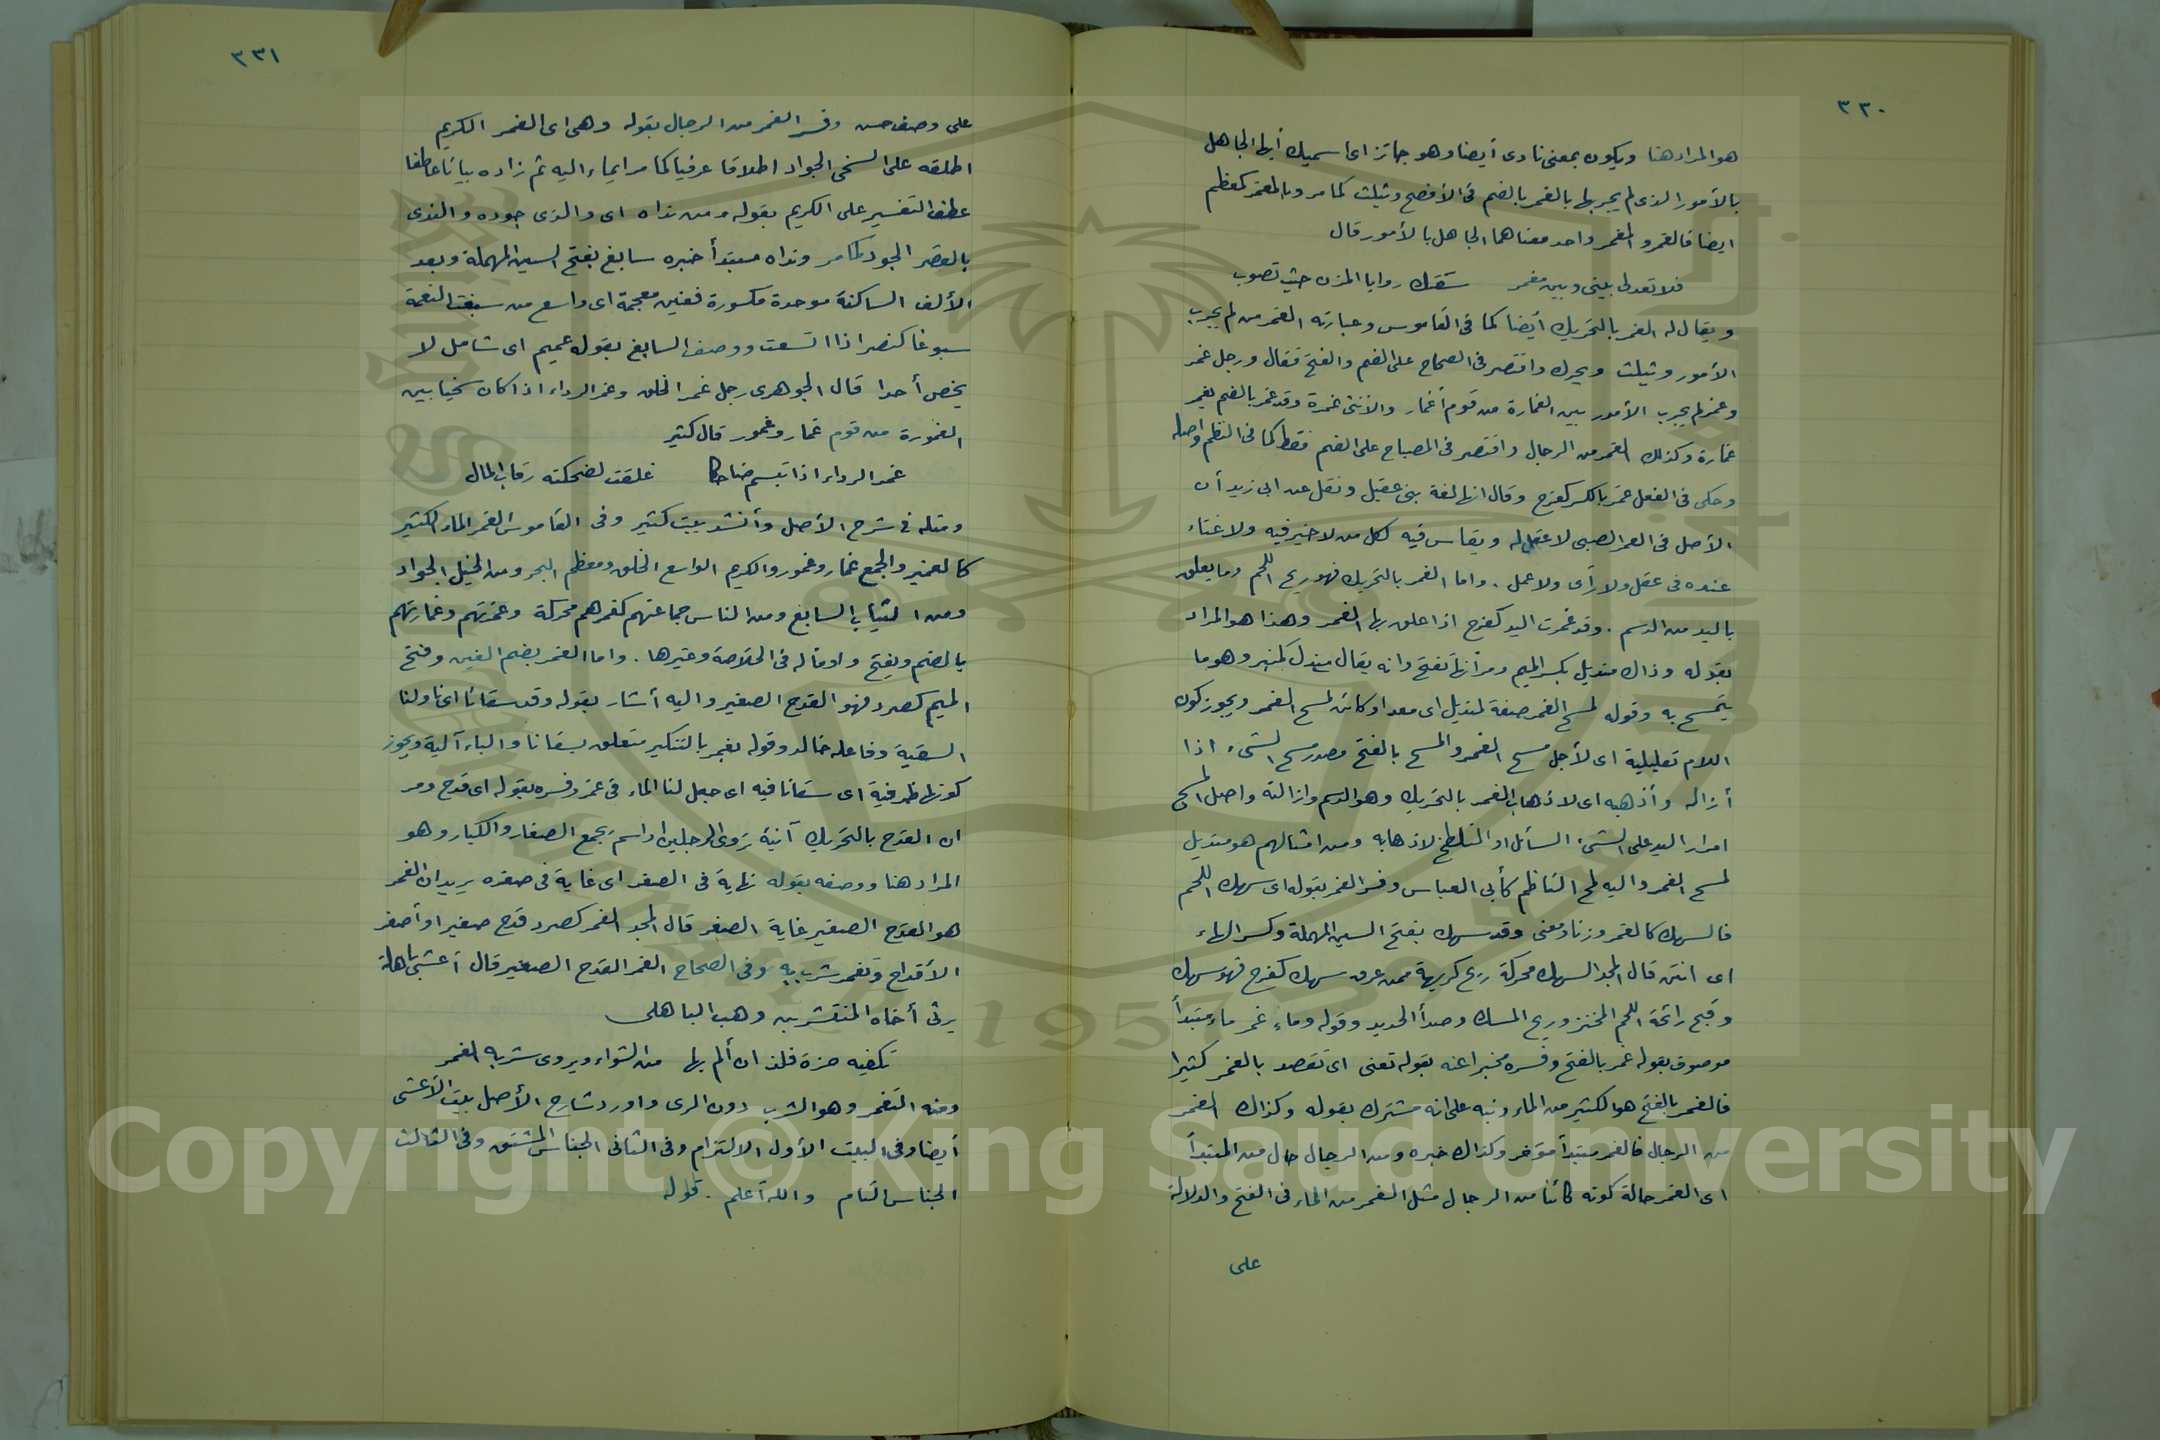 ٣٣٠
هو المراد هنا ويكون بمعنى نادى أيضا وهو جائز اى اسميك أيها الجاهل
بالأمور الذى لم يجربها بالغمر بالضم فى الأفصح وثيلث كما مر وبالمغمر كمعظم
ايضا فالغمر والمغمر واحد معناهما الجاهل بالأمور قال
فلا تعدلى بينى وبين مغمر سقتك روايا المزن حيث تصوب
ويقال له الغمر بالتحريك أيضا كما فى القاموس وعبارته الغمر من لم يجرب
الأمور وثيلث ويحرك واقتصر فى الصحاح على الضم والفتح فقال ورجل غمر
وغمر لم يجرب الأمور بين الغمارة من قوم أغمار والأنثى غمرة وقد غمر بالضم يغمر
غمارة وكذلك المغمر من الرجال واقتصر فى المصباح على الضم فقط كما فى النظم وأصله
وحكى فى الفعل غمر بالكسر كفرح وقال انها لغة بنى عقيل ونقل عن ابى زيد أن
الأصل فى الغمر الصبى لا عقل له ويقاس فيه لكل من لا خير فيه ولا غناء
عنده فى عقل ولا رأى ولا عمل . واما الغمر بالتحريك فهو ريح اللحم وما يعلق
باليد من الدسم . وقد غمرت اليد كفرح اذا علق بها الغمر وهذا هو المراد
بقوله وذاك منديل بكسر الميم ومر أنها تفتح وانه يقال مندل كمنبر وهو ما
يتمسح به وقوله لمسح الغمر صفة لمنديل اى معد او كائن لمسح الغمر ويجوز كون
اللام تعليلية اى لأجل مسح الغمر والمسح بالفتح مصدر مسح الشىء اذا
أزاله وأذهبه اى لاذهاب الغمر بالتحريك وهو الدسم وازالته واصل المسح
امرار اليد على الشىء السائل او المتلطخ لاذهابه ومن امثالهم هو منديل
لمسح الغمر واليه لمح الناظم كأبى العباس وفسر الغمر بقوله اى سهك اللحم
فالسهك كالغمر وزنا ومعنى وقد سهك بفتح السين المهملة وكسر الهاء
اى انتن قال المجد السهك محركة ريح كريهة ممن عرق سهك كفرح فهو سهك
وقبح رائحة اللحم الخنز وريح السمك وصدأ الحديد وقوله وماء غمر ماء مبتدأ
موصوف بقوله غمر بالفتح وفسره مخبرا عنه بقوله تعنى اى تقصد بالغمر كثيرا
فالغمر بالفتح هو الكثير من الماء ونبه على انه مشترك بقوله وكذاك الغمر
من الرجال فالغمر مبتدأ مؤخر وكذاك خبره ومن الرجال حال من المبتدأ
اى الغمر حالة كونه كائنا من الرجال مثل الغمر من الماء فى الفتح والدلالة
على
٣٣١
على وصف حسن وفسر الغمر من الرجال بقوله وهى اى الغمر الكريم
اطلقه على السخى الجواد اطلاقا عرفيا كما مر ايماء اليه ثم زاده بيانا عاطفا
عطف التفسير على الكريم بقوله ومن نداه اى والذى جوده والندى
بالقصر الجود كما مر ونداه مبتدأ خبره سابغ بفتح السين المهملة وبعد
الألف الساكنة موحدة مكسورة فغين معجمة اى واسع من سبغت النعمة
سبوغا كنصر اذا اتسعت ووصف السابغ بقوله عميم اى شامل لا
يخص أحدا قال الجوهرى رجل غمر الخلق وغمر الرداء اذا كان سخيا بين
الغمورة من قوم غمار وغمور قال كثير
غمر الرداء اذا تبسم ضاحكا غلقت لضحكته رقاب المال
ومثله فى شرح الأصل وأنشد بيت كثير وفى القاموس الغمر الماء الكثير
كالغمير والجمع غمار وغمور والكريم الواسع الخلق ومعظم البحر ومن الخيل الجواد
ومن الثياب السابغ ومن الناس جماعتهم كغمرهم محركة وغمرتهم وغمارتهم
بالضم ويفتح وأوماله فى الخلاصة وغيرها . واما الغمر بضم الغين وفتح
الميم كصرد فهو القدح الصغير واليه أشار بقوله وقد سقانا اى ناولنا
السقية وفاعله خالد وقوله بغمر بالتنكير متعلق بسقانا والباء آلية ويجوز
كونها ظرفية اى سقانا فيه اى جعل لنا الماء فى غمر وفسره بقوله اى قدح ومر
ان القدح بالتحريك آنية تروى الرجلين او اسم يجمع الصغار والكبار وهو
المراد هنا ووصفه بقوله نهاية فى الصغر اى غاية فى صغره يريد ان الغمر
هو القدح الصغير غاية الصغر قال المجد الغمر كصرد قدح صغير او أصغر
الأقداح وتغمر شرب به وفى الصحاح الغمر القدح الصغير قال أعشى باهلة
يرثى أخاه المنتشر بن وهب الباهلى
تكفيه حزة فلذ ان ألم بها من الشواء ويروى شربه الغمر
ومنه التغمر وهو الشرب دون الرى واورد شارح الأصل بيت الأعشى
أيضا وفى البيت الأول الالتزام وفى الثانى الجناس المشتق وفى الثالث
الجناس التام والله أعلم . قوله
1957
Copyright © King Saud University